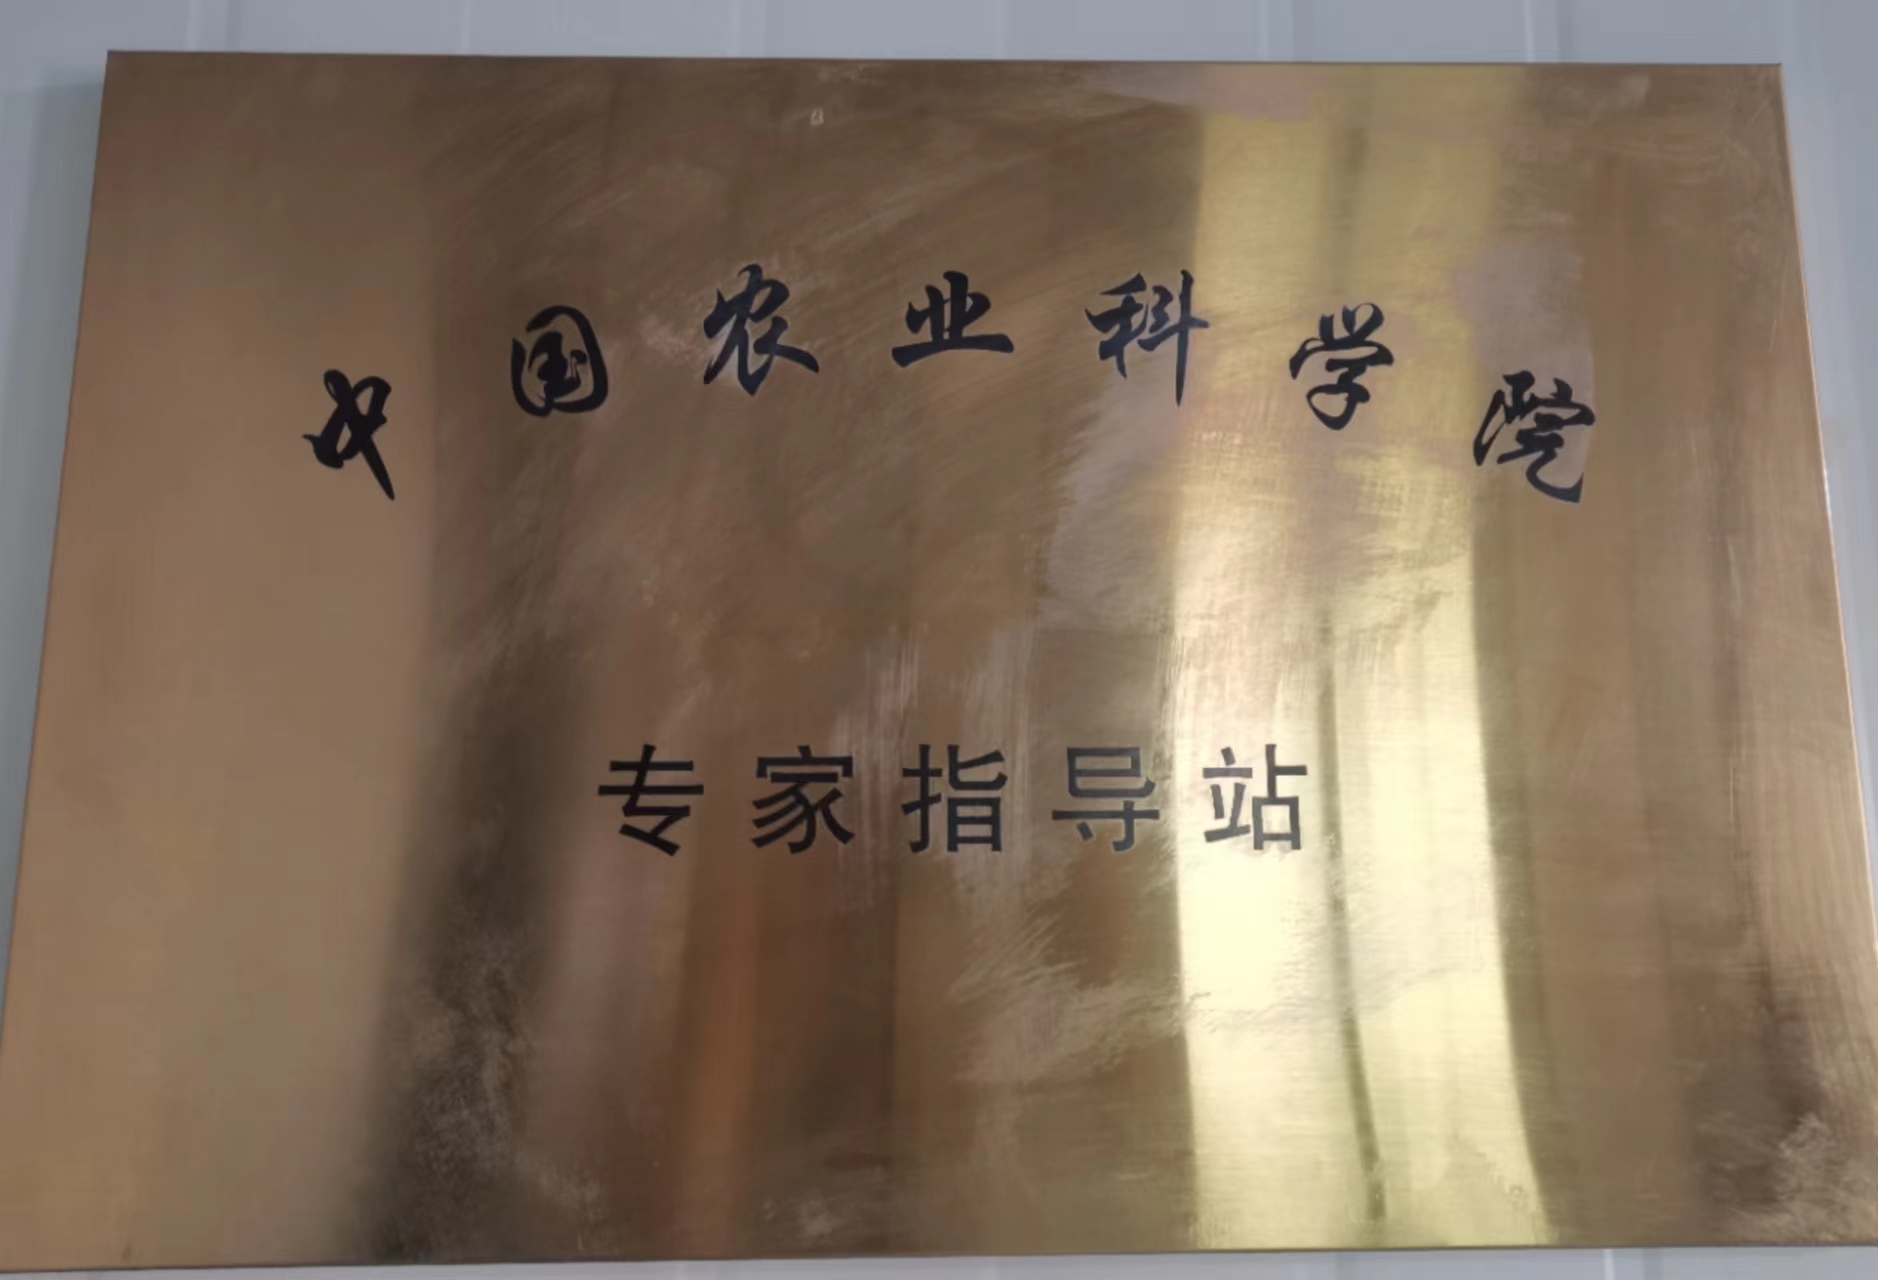 中国农业科学院
专家指导站